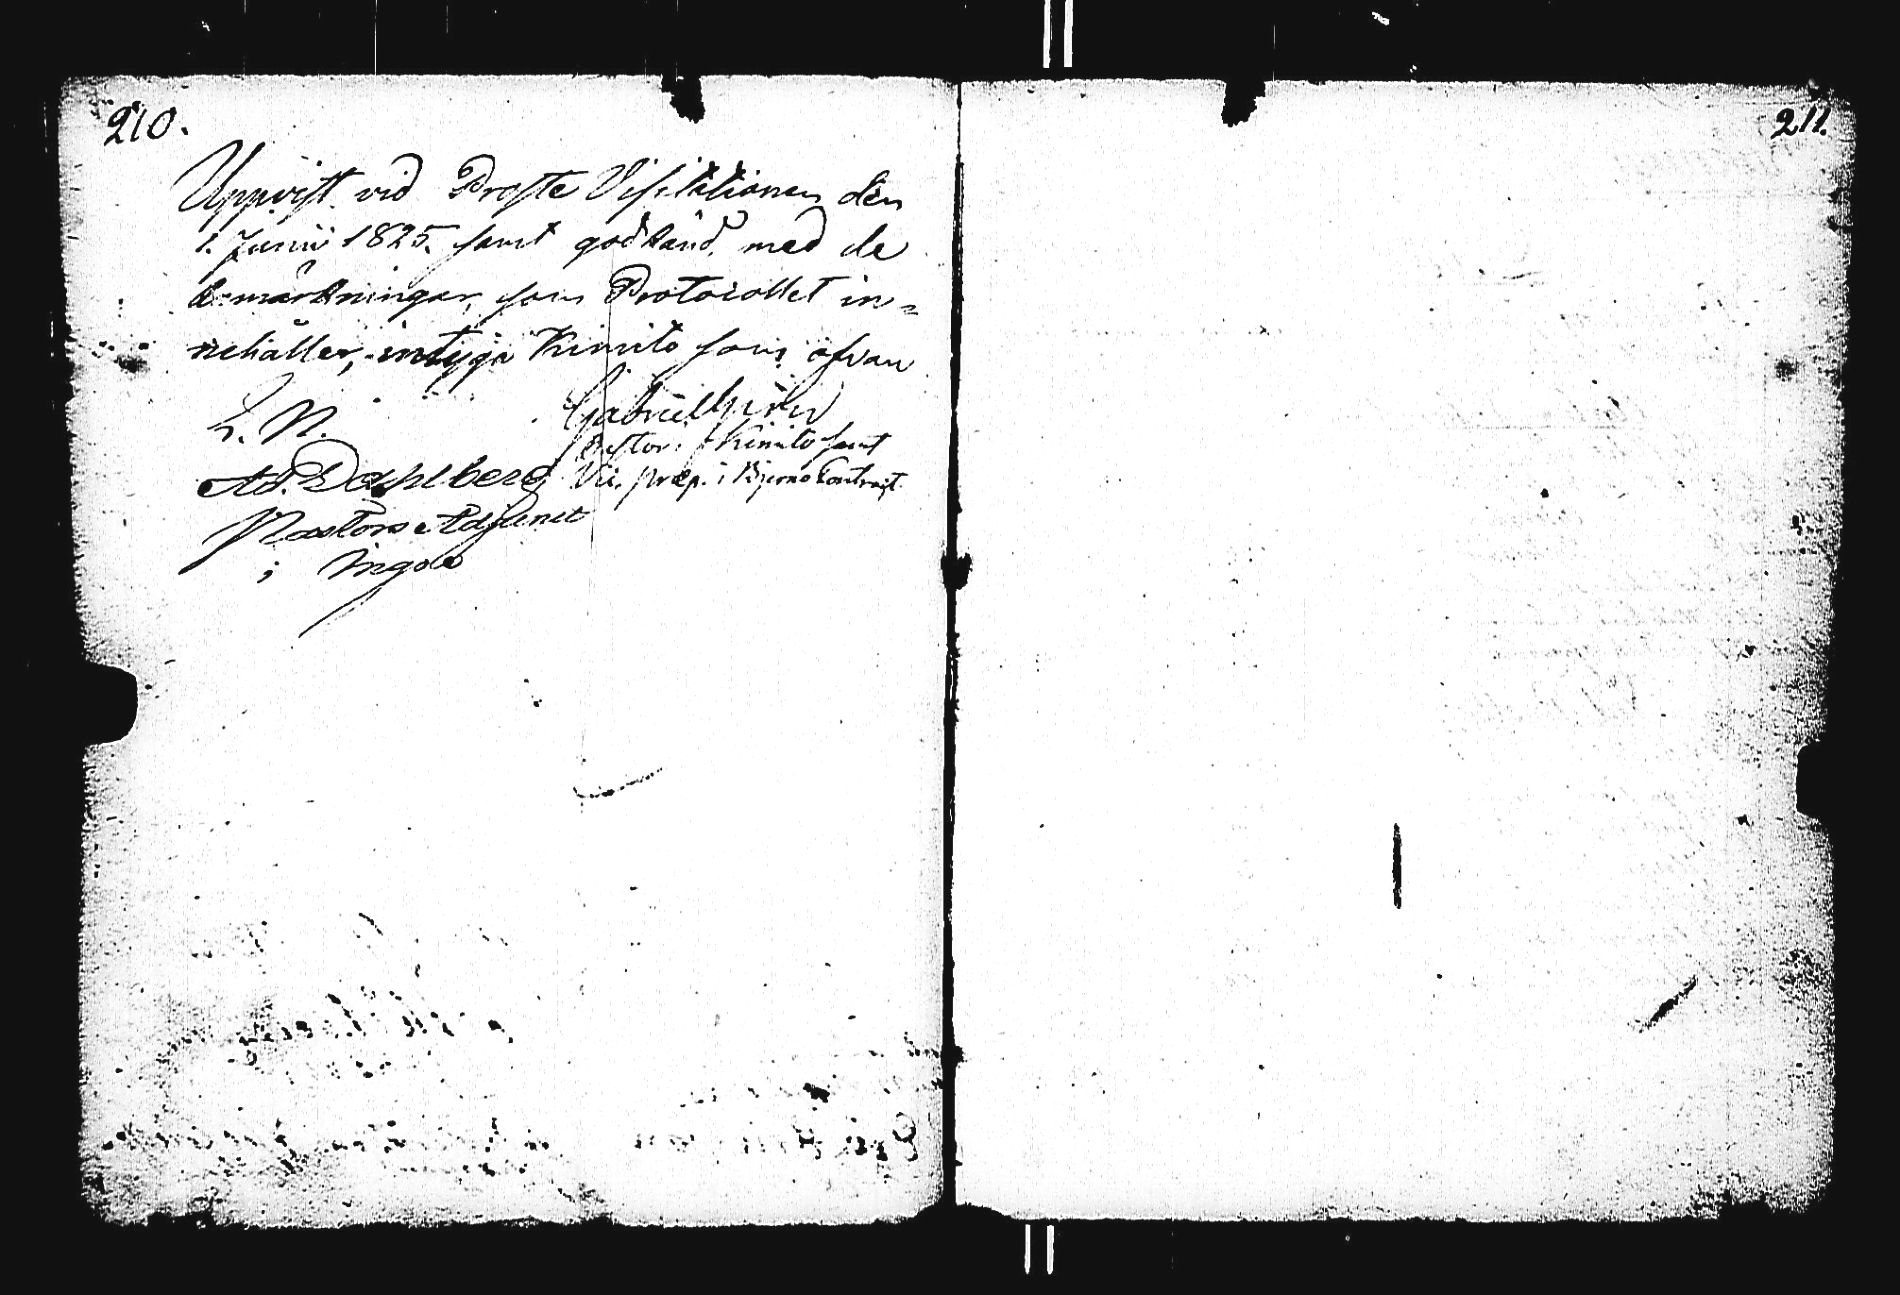 210.
Uppvist vid Proste Visitationen den
1. Junii 1825. samt godkänd, med de
anmärkningar, som Protocollet in=
nehåller, intyga Kimito som ofvan
L. N. Gabriel
Pastor i Kimito samt
Ad. Dahlberg Vic. præp. i Bjerno Contract
Pastors Adjunct
i Ingo
211.